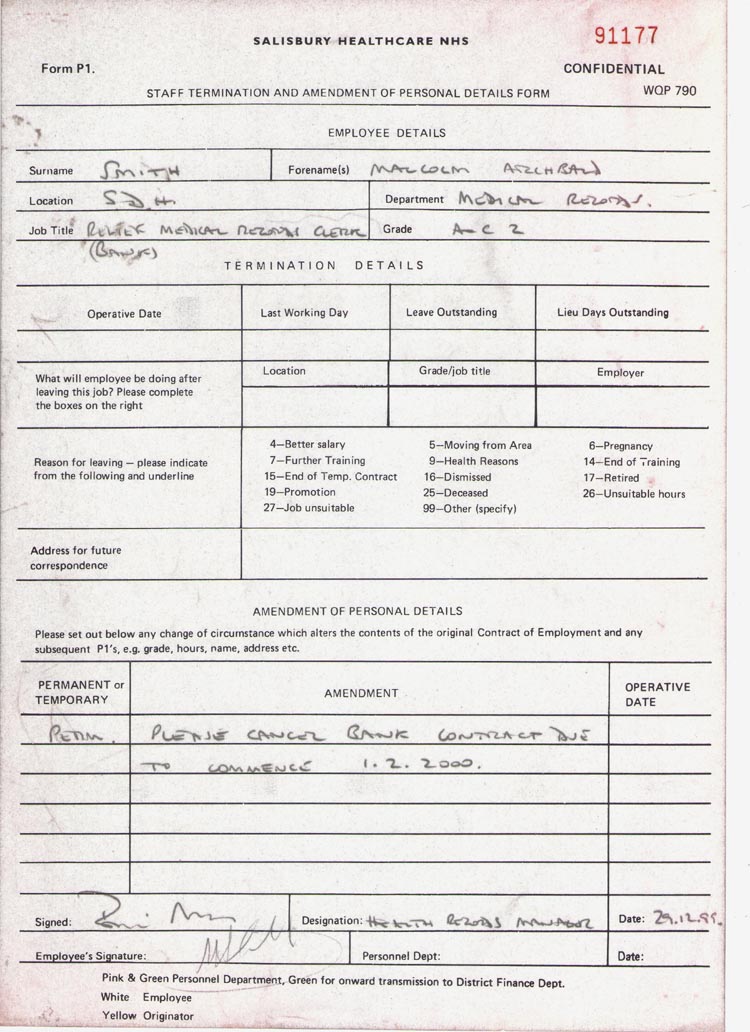 SALISBURY HEALTHCARE NHS
91177
Form P1.
CONFIDENTIAL
STAFF TERMINATION AND AMENDMENT OF PERSONAL DETAILS FORM
WQP 790
EMPLOYEE DETAILS
Surname SMITH Forename(s) MALCOLM ARCHBALD
Location SDH Department MEDICAL RECORDS.
Job Title RELIEF MEDICAL RECORDS CLERK Grade A-C 2
(BANK)
TERMINATION DETAILS
Operative Date Last Working Day Leave Outstanding Lieu Days Outstanding
What will employee be doing after
leaving this job? Please complete
the boxes on the right
Location Grade/job title Employer
Reason for leaving – please indicate
from the following and underline
4–Better salary 5–Moving from Area 6–Pregnancy
7–Further Training 9–Health Reasons 14–End of Training
15–End of Temp. Contract 16–Dismissed 17–Retired
19–Promotion 25–Deceased 26–Unsuitable hours
27–Job unsuitable 99–Other (specify)
Address for future
correspondence
AMENDMENT OF PERSONAL DETAILS
Please set out below any change of circumstance which alters the contents of the original Contract of Employment and any
subsequent P1's, e.g. grade, hours, name, address etc.
PERMANENT or
TEMPORARY
AMENDMENT
OPERATIVE
DATE
PERM. PLEASE CANCEL BANK CONTRACT DUE
TO COMMENCE 1.2.2000.
Signed: Designation: HEALTH RECORDS MANAGER Date: 29.12.99.
Employee's Signature: Personnel Dept: Date:
Pink & Green Personnel Department, Green for onward transmission to District Finance Dept.
White Employee
Yellow Originator